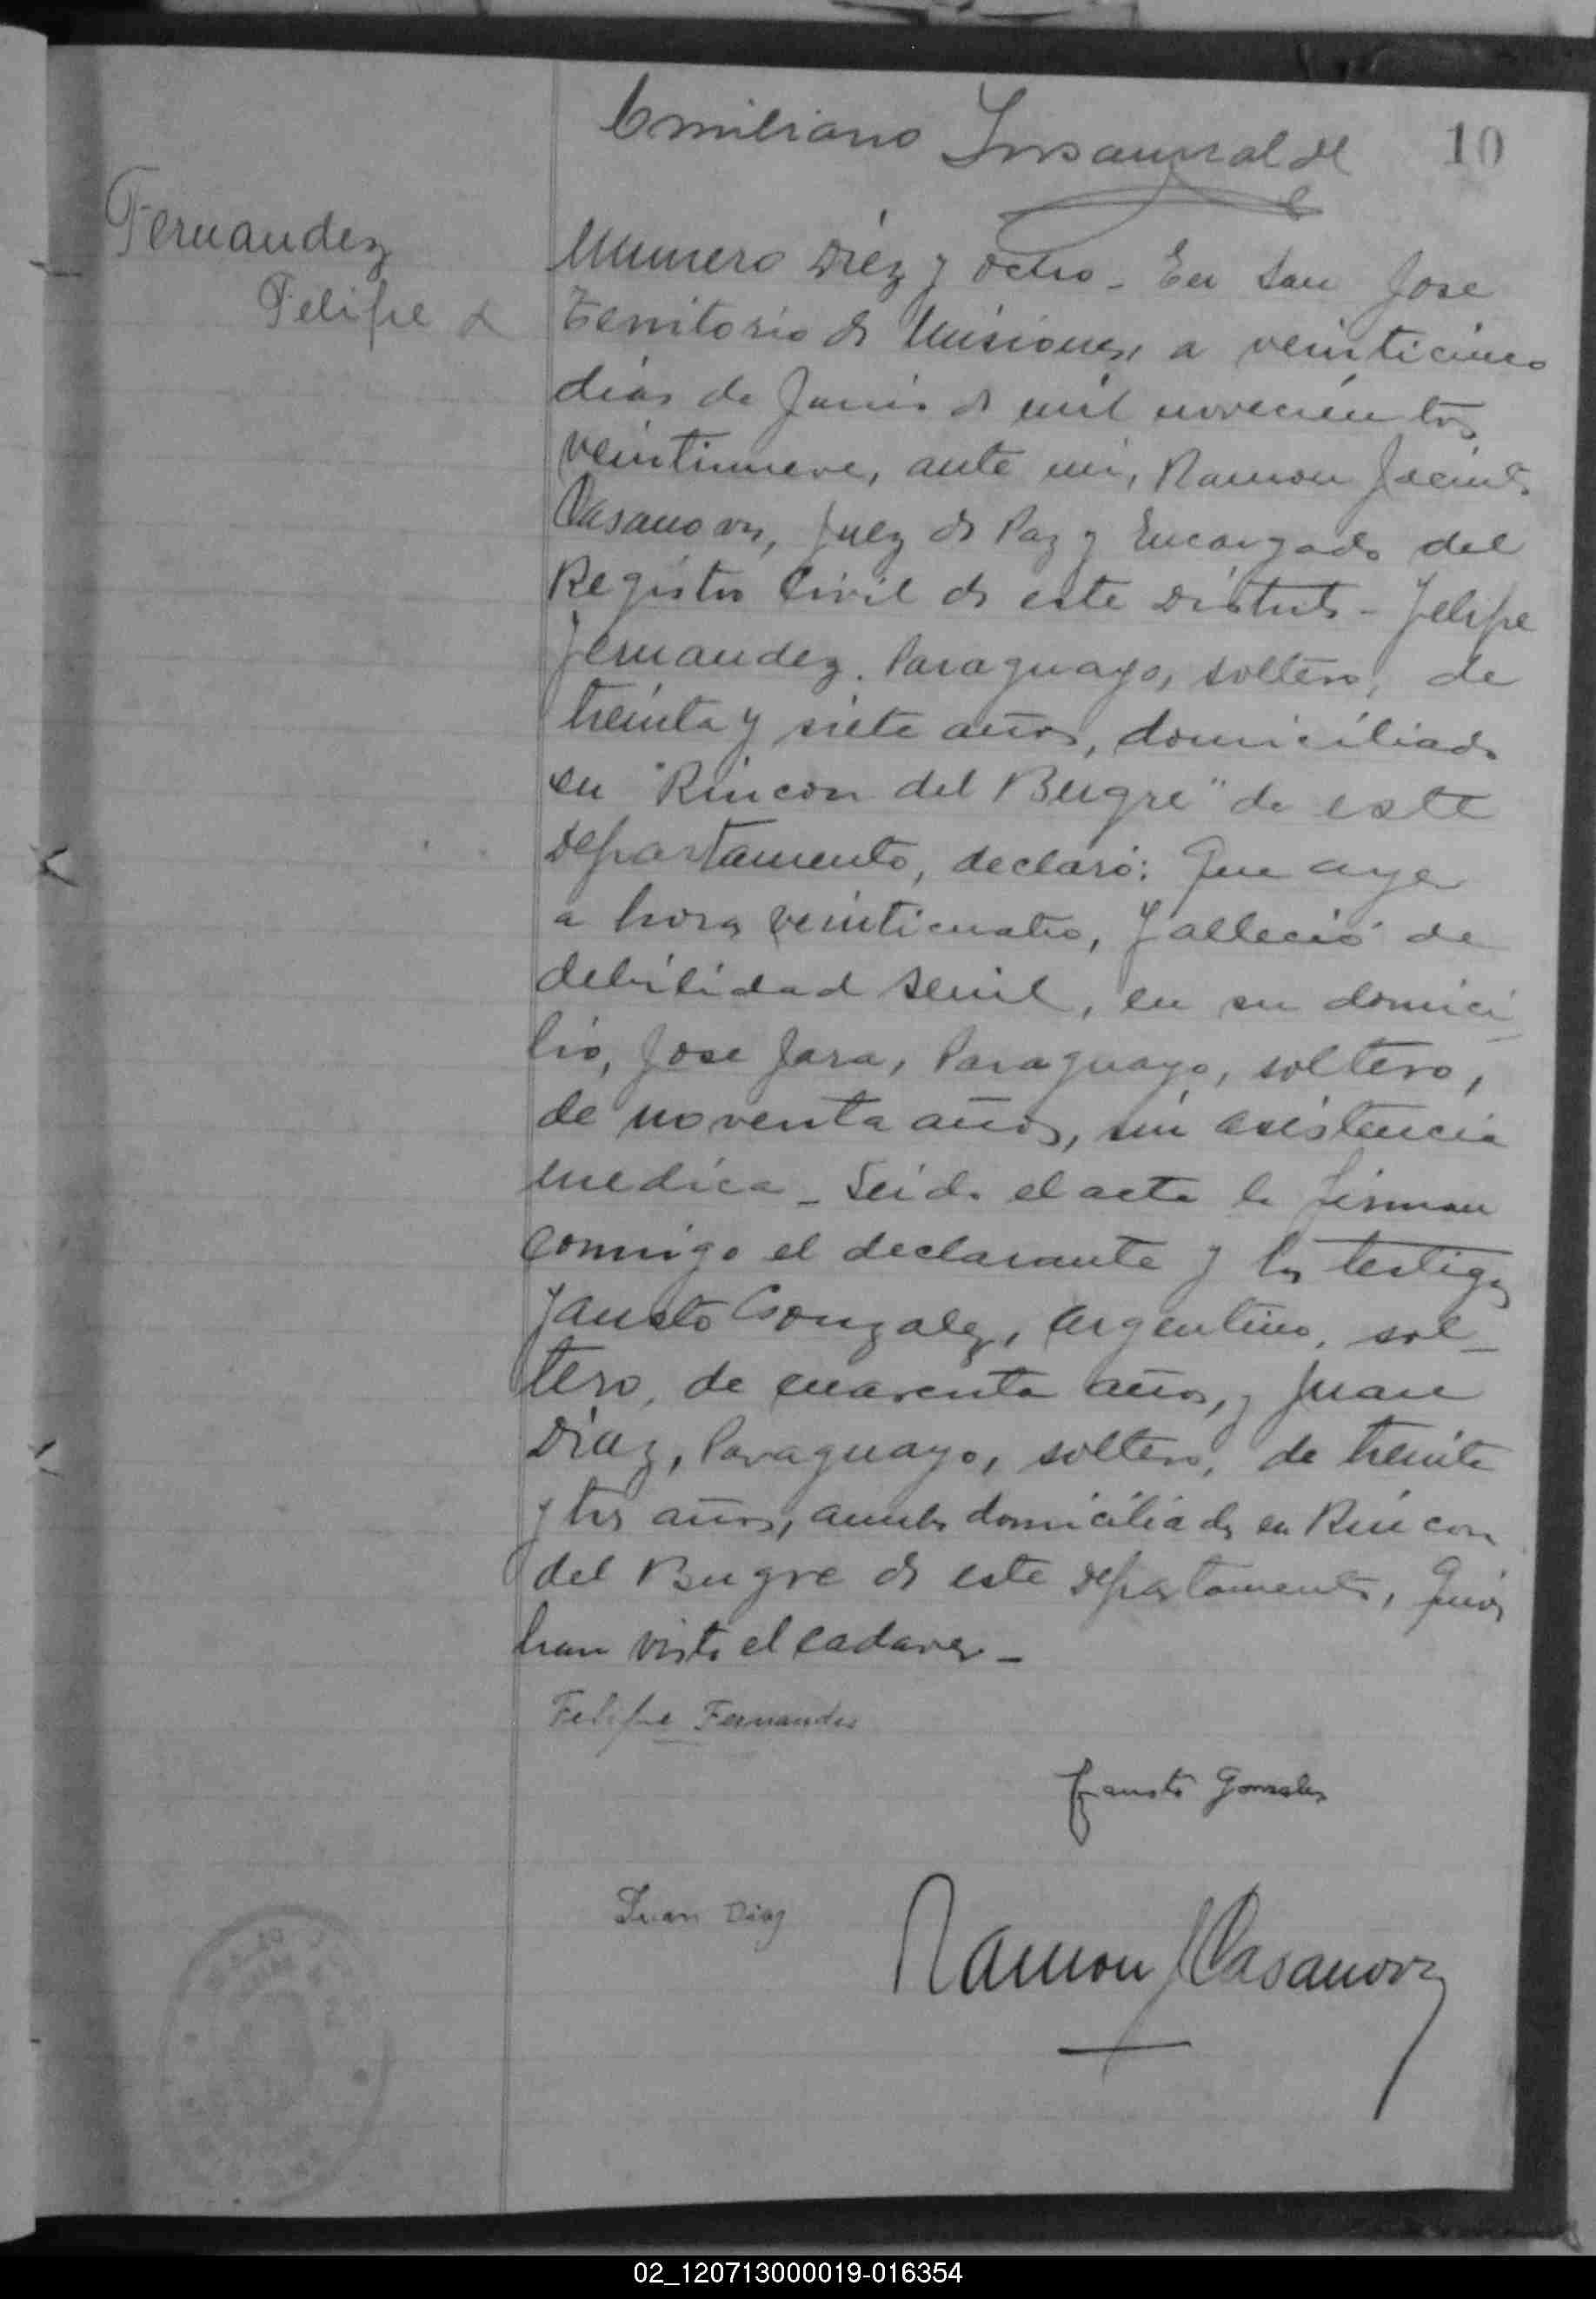 Emiliano Insaurralde
10
Fernandez
Felipe
Numero Diez y ocho - En San Jose
Territorio de Misiones, a veinticinco
dias de Junio de mil novecientos
veintinueve, ante mi, Ramon Jacinto
Casanova, Juez de Paz y Encargado del
Registro Civil de este Distrito - Felipe
Fernandez. Paraguayo, soltero, de
treinta y siete años, domiciliado
en "Rincon del Bugre" de este
Departamento, declaró: Que ayer
a horas veinticuatro, falleció de
debilidad senil, en su domici
lio, Jose Jara, Paraguayo, soltero,
de noventa años, sin asistencia
medica - Leida el acta la firman
conmigo el declarante y los testigos
Fausto Gonzalez, Argentino, sol-
tero, de cuarenta años, y Juan
Diaz, Paraguayo, soltero, de treinta
y tres años, ambos domiciliados en Rincon
del Bugre de este Departamento, quienes
han visto el cadaver -
Felipe Fernandes
Fausto Gonzales
Juan Diaz
Ramon J Casanova
02_120713000019-016354